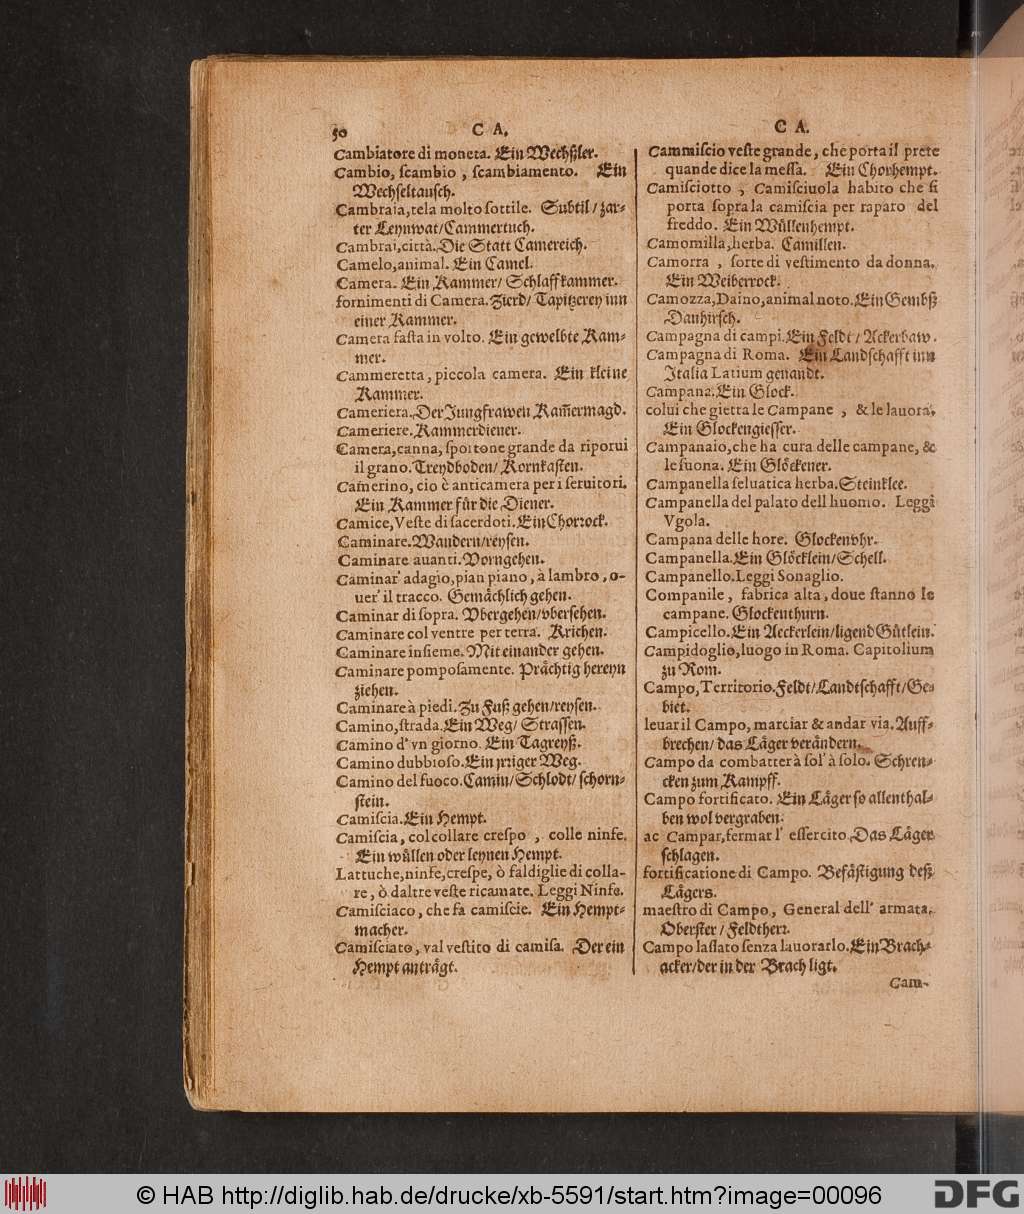 50
C A.
C A.
Cambiatore di moneta. Ein Wechßler.
Cambio, ſcambio, ſcambiamento. Ein
Wechſeltauſch.
Cambraia, tela molto ſottile. Subtil / zar-
ter Leynwat/Cammertuch.
Cambrai, città. Die Statt Camereich.
Camelo, animal. Ein Camel.
Camera. Ein Kammer/ Schlaffkammer.
fornimenti di Camera. Zierd/ Tapitzerey inn
einer Kammer.
Camera faſta in volto. Ein gewelbte Kam-
mer.
Cammeretta, piccola camera. Ein kleine
Kammer.
Cameriera. Der Jungfrawen Kam̃ermagd.
Cameriere. Kammerdiener.
Camera, canna, ſportone grande da riporui
il grano. Treydboden/ Kornkaſten.
Camerino, cio è anticamera per i ſeruitori.
Ein Kammer fuͤr die Diener.
Camice, Veſte di ſacerdoti. Ein Chorrock.
Caminare. Wandern/reyſen.
Caminare auanti. Vorngehen.
Caminar' adagio, pian piano, à lambro, o-
uer' il tracco. Gemaͤchlich gehen.
Caminar di ſopra. Vbergehen/vberſehen.
Caminare col ventre per terra. Krichen.
Caminare inſieme. Mit einander gehen.
Caminare pompoſamente. Praͤchtig hereyn
ziehen.
Caminare à piedi. Zu Fuß gehen/reyſen.
Camino, ſtrada. Ein Weg/ Straſſen.
Camino d' vn giorno. Ein Tagreyß.
Camino dubbioſo. Ein jrriger Weg.
Camino del fuoco. Camin/ Schlodt/ ſchorn-
ſtein.
Camiſcia. Ein Hempt.
Camiſcia, col collare creſpo, colle ninfe.
Ein wuͤllen oder leynen Hempt.
Lattuche, ninfe, creſpe, ò faldiglie di colla-
re, ò d altre veſte ricamate. Leggi Ninfe.
Camiſciaco, che fa camiſcie. Ein Hempt-
macher.
Camiſciato, val veſtito di camiſa. Der ein
Hempt antraͤgt.
Cammiſcio veſte grande, che porta il prete
quande dice la meſſa. Ein Chorhempt.
Camiſciotto, Camiſciuola habito che ſi
porta ſopra la camiſcia per raparo del
freddo. Ein Wuͤllenhempt.
Camomilla, herba. Camillen.
Camorra, ſorte di veſtimento da donna.
Ein Weiberrock.
Camozza, Daino, animal noto. Ein Gembß
Danhirſch.
Campagna di campi. Ein Feldt / Ackerbaw.
Campagna di Roma. Ein Landſchafft inn
Italia Latium genandt.
Campana. Ein Glock.
colui che gietta le Campane, & le lauora.
Ein Glockengieſſer.
Campanaio, che ha cura delle campane, &
le ſuona. Ein Gloͤckener.
Campanella ſeluatica herba. Steinklee.
Campanella del palato dell huomo. Leggi
Vgola.
Campana delle hore. Glockenvhr.
Campanella. Ein Gloͤcklein/Schell.
Campanello. Leggi Sonaglio.
Companile, fabrica alta, doue ſtanno le
campane. Glockenthurn.
Campicello. Ein Aeckerlein/ligend Guͤtlein.
Campidoglio, luogo in Roma. Capitolium
zu Rom.
Campo, Territorio. Feldt/Landtſchafft/Ge-
biet.
leuar il Campo, marciar & andar via. Auff-
brechen/ das Laͤger veraͤndern.
Campo da combatterà ſol' à ſolo. Schren-
cken zum Kampff.
Campo fortificato. Ein Laͤger ſo allenthal-
ben wol vergraben.
ac Campar, fermar l' eſſercito. Das Laͤger
ſchlagen.
fortificatione di Campo. Befaͤſtigung deß
Laͤgers.
maeſtro di Campo, General dell' armata.
Oberſter / Feldtherr.
Campo laſlato ſenza lauorarlo. Ein Brach-
acker/der in der Brach ligt.
Cam-
© HAB http://diglib.hab.de/drucke/xb-5591/start.htm?image=00096
DFG